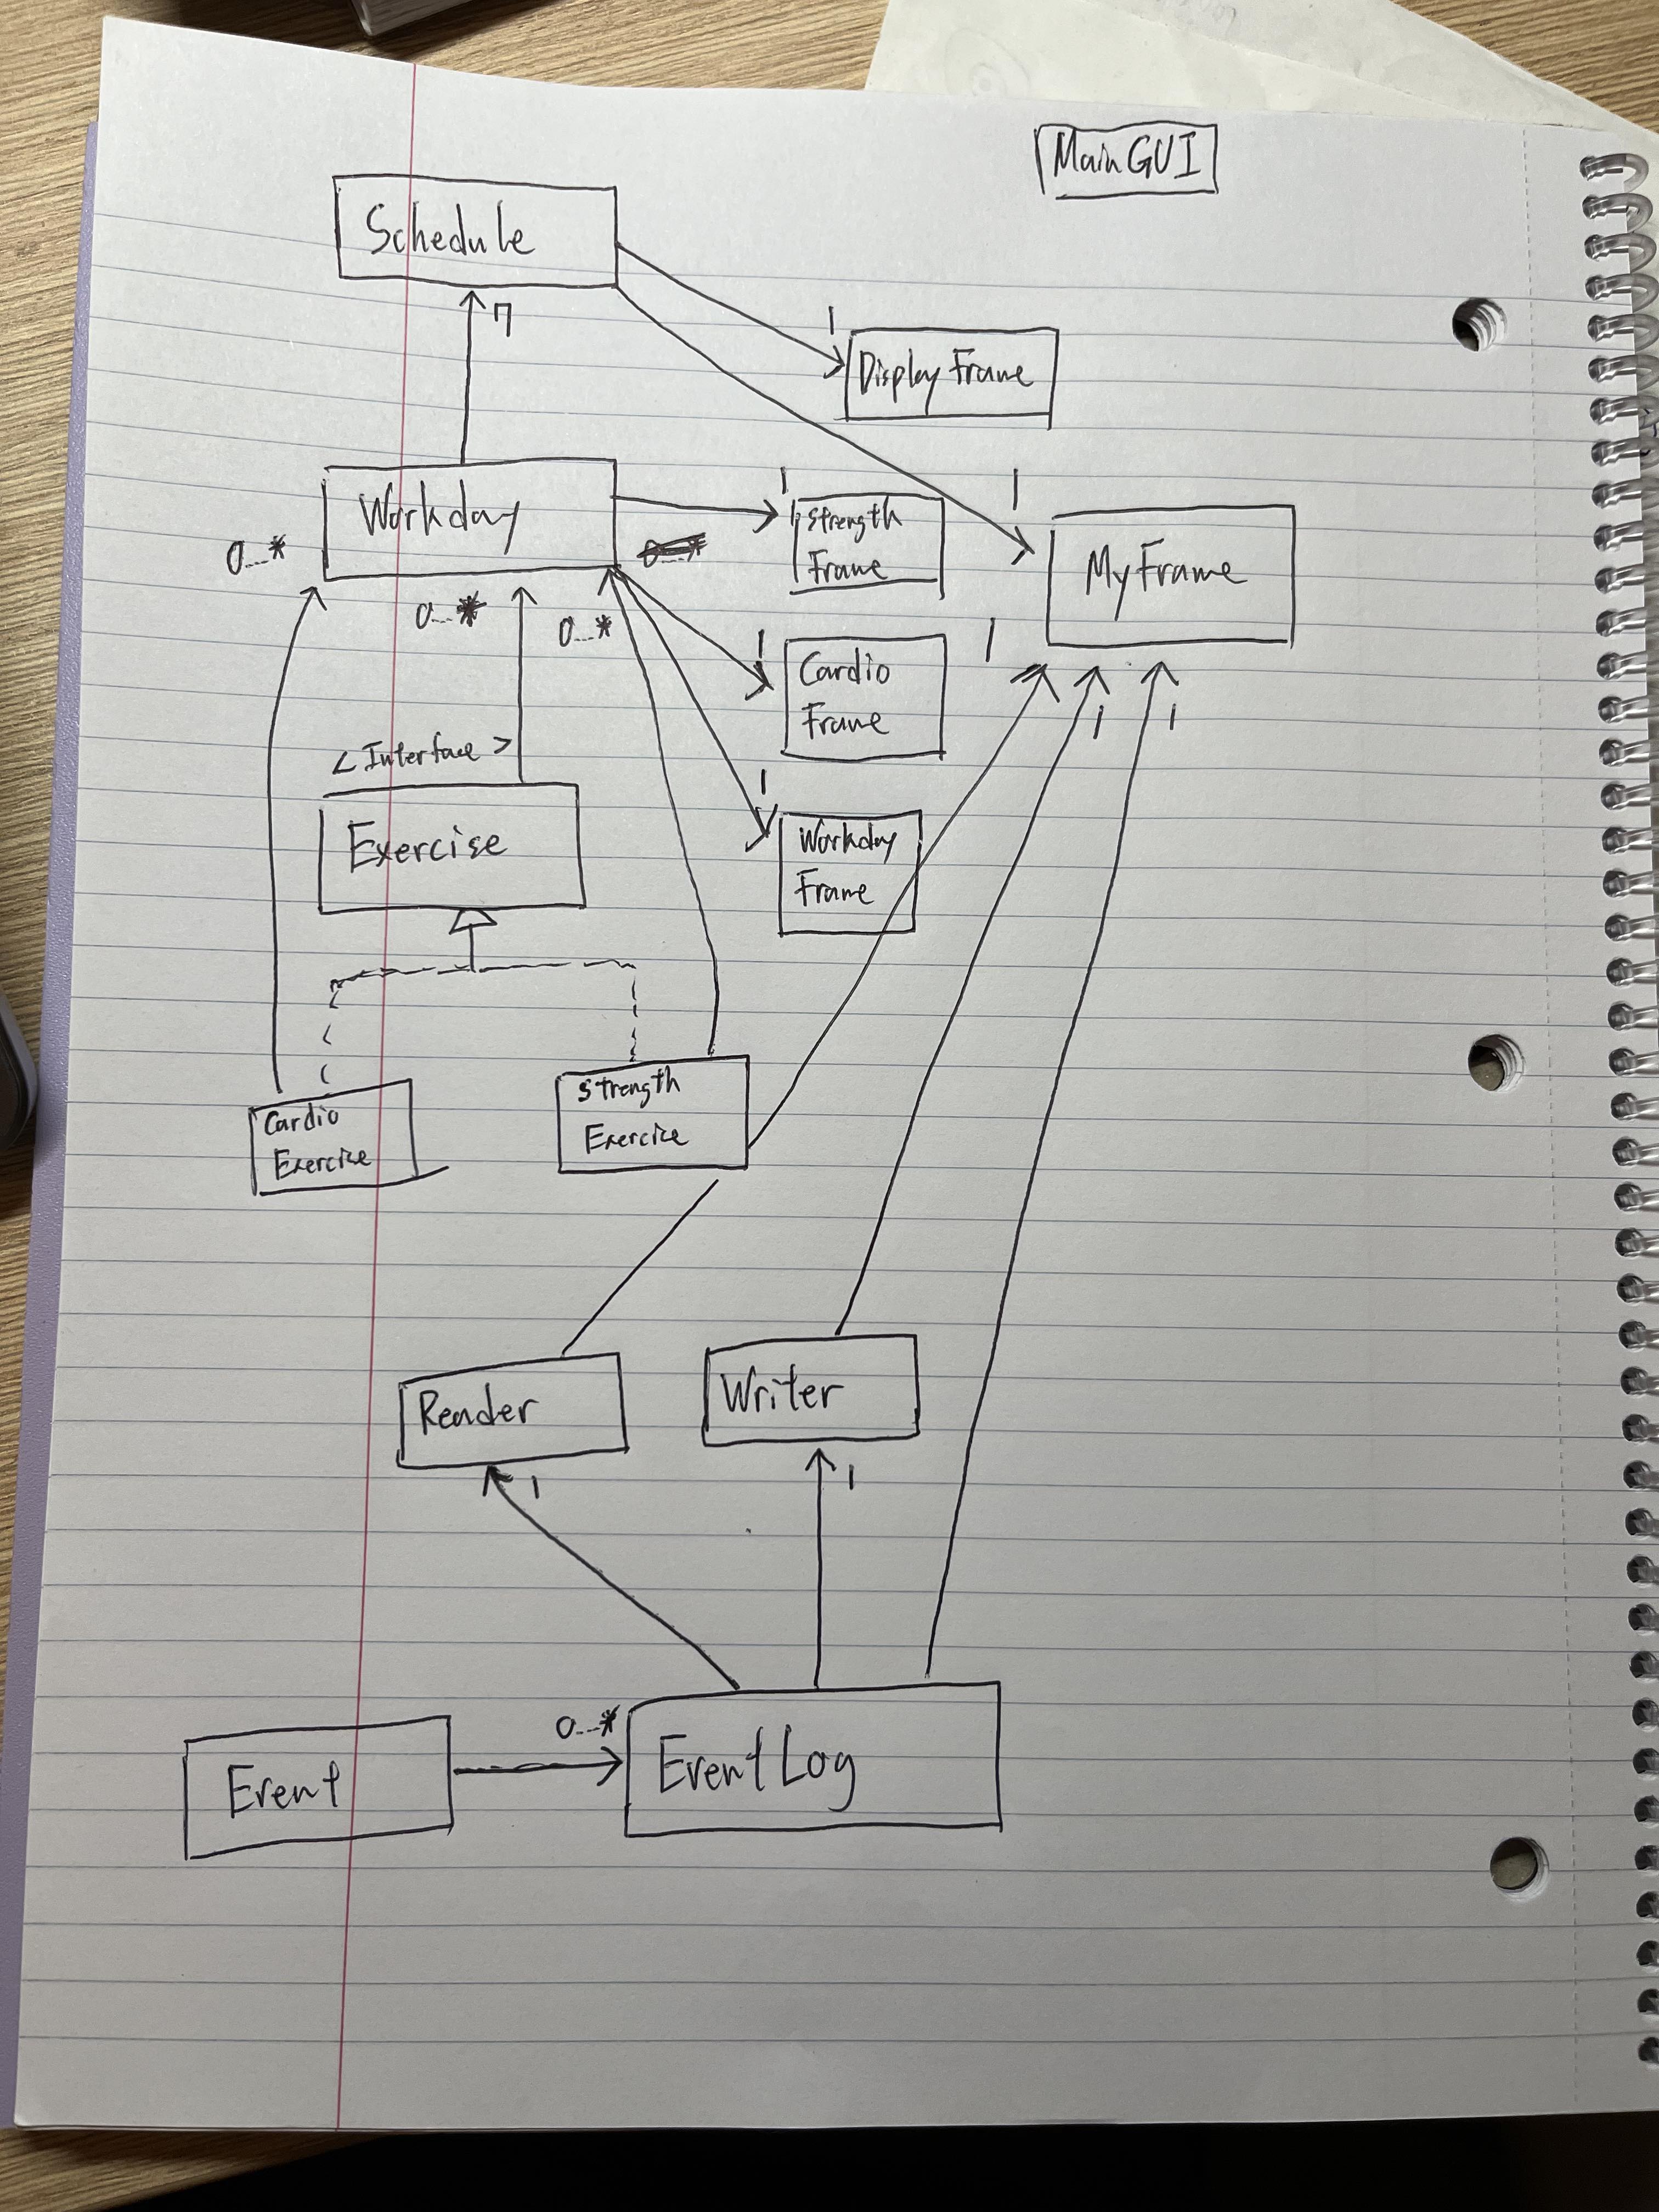 MainGUI
Schedule
7
1
Display Frame
Workday
1
1
Strength
Frame
MyFrame
0...*
0...*
0...*
1
Cardio
Frame
1
1
1
<Interface>
1
Exercise
Workday
Frame
Cardio
Exercise
Strength
Exercise
Reader
Writer
1
1
0...*
Event
EventLog